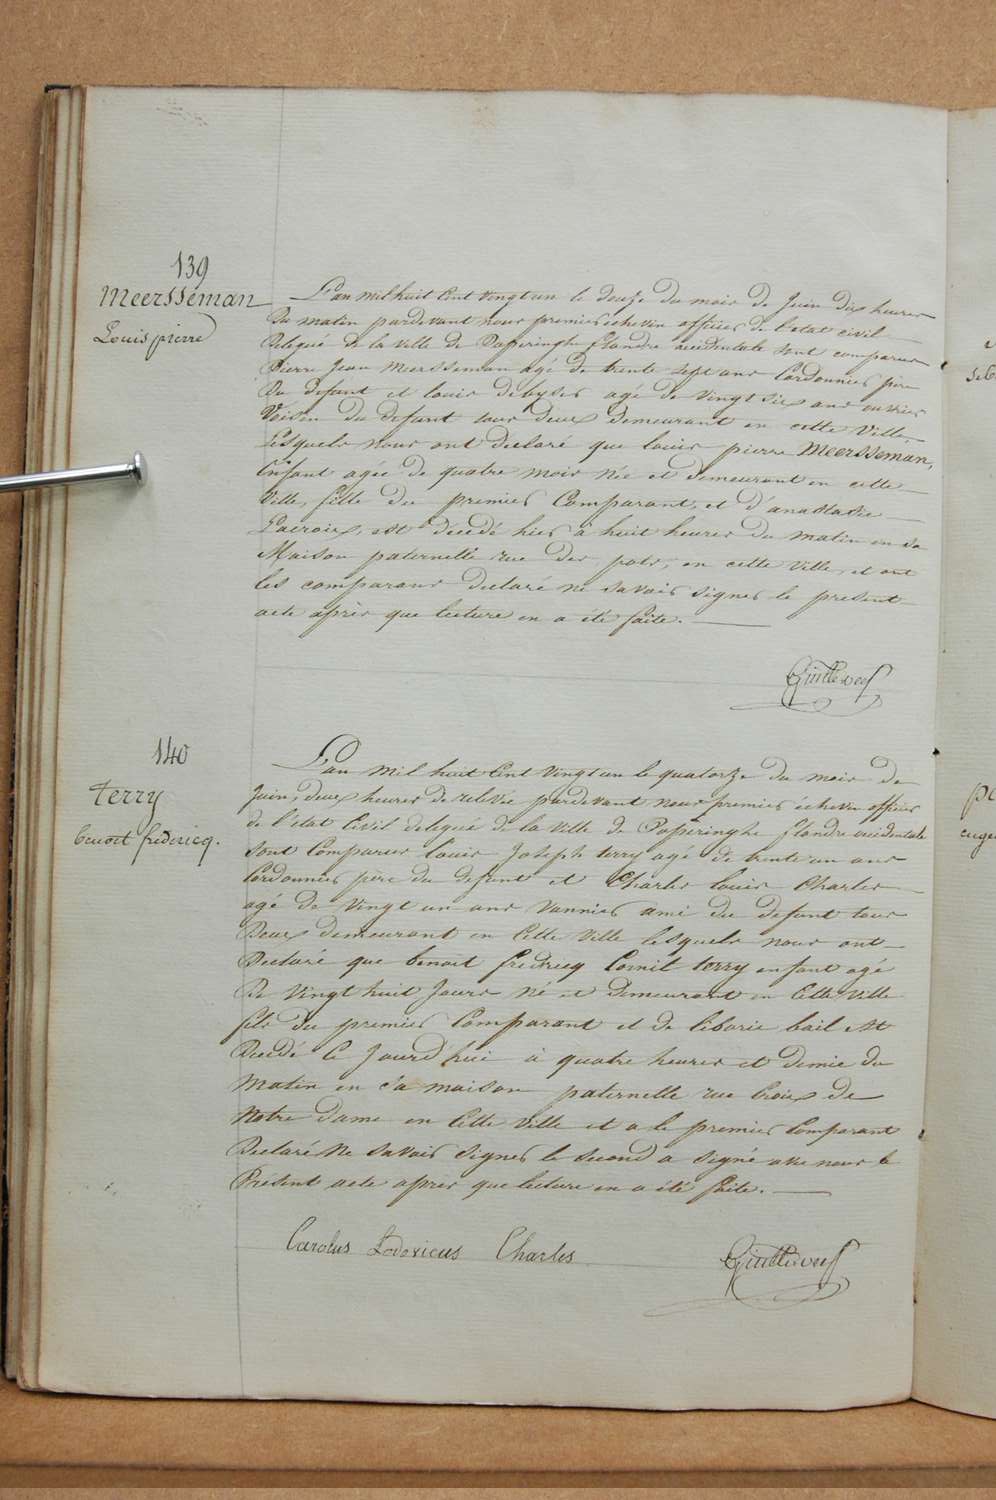 139
Meersseman
Louis pierre
L'an mil huit cent vingt un le douze du mois de Juin dix heures
du matin pardevant nous premier échevin officier de l'etat civil
delegué de la ville de Poperinghe flandre occidentale sont comparus
Pierre Jean Meersseman agé de trente sept ans Cordonnier père
du defunt et louis debyser agé de vingt six ans ouvrier
Voisin du defunt tous deux demeurant en cette Ville,
Lesquels nous ont declaré que louis pierre Meersseman,
Enfant agée de quatre mois née et demeurant en cette
Ville, fille du premier Comparant, et d'anastasie
Lacroix, est décédé hier à huit heures du matin en sa
Maison paternelle rue des pots, en cette Ville, et ont
les comparans declaré ne savoir signer le present
acte après que lecture en a été faite.
140
terry
benoit fredericq.
L'an mil huit Cent Vingt un le quatorze du mois de
Juin, deux heures de relevée pardevant nous premier échevin officier
de l'état Civil delegué de la Ville de Poperinghe flandre occidentale
sont Comparus louis Joseph terry agé de trente un ans
Cordonnier père du defunt et Charles louis Charles
agé de Vingt un ans Vannier ami du defunt tous
Deux demeurant en Cette Ville lesquels nous ont
Declaré que benoit fredricq Cornil terry enfant agé
De Vingt huit Jours né et demeurant en Cette Ville
fils du premier Comparant et de liborie bail est
Decédé Ce Jourd'hui à quatre heures et demie du
Matin en sa maison paternelle rue Croix de
Notre dame en Cette Ville et a le premier Comparant
Declaré Ne savoir signer le second a signé avec nous le
Présent acte apres que lecture en a été faite.
Carolus Lodovicus Charles